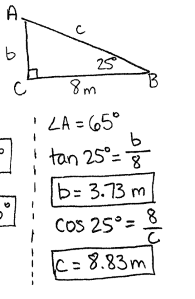 A
c
b
25°
C
8m
B
∠A = 65°
tan 25° = b/8
b = 3.73 m
cos 25° = 8/c
c = 8.83 m